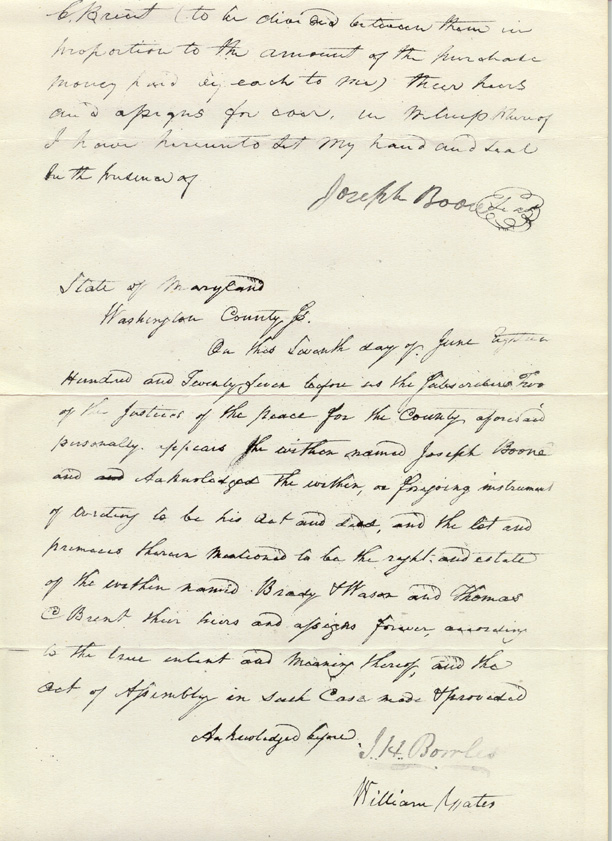 C. Brent (to be divided between them in
proportion to the amount of the purchase
money paid by each to me) their heirs
and assigns for ever. in Witness thereof
I have hereunto set my hand and seal
In the presence of
Joseph Boone Seal
State of Maryland
Washington County Ss.
On this Seventh day of June Eighteen
Hundred and Twenty Seven before us the Subscribers Two
of the Justices of the peace for the County aforesaid
personally appears the within named Joseph Boone
and and Acknowledged the within, or foregoing instrument
of writing to be his act and deed, and the lot and
premises therein mentioned to be the right and estate
of the within named Brady & Wason and Thomas
C Brent their heirs and assigns forever, according
to the true intent and meaning thereof, and the
act of Assembly in such Case made & provided
Acknowledged before
J. H. Bowles
William Yates